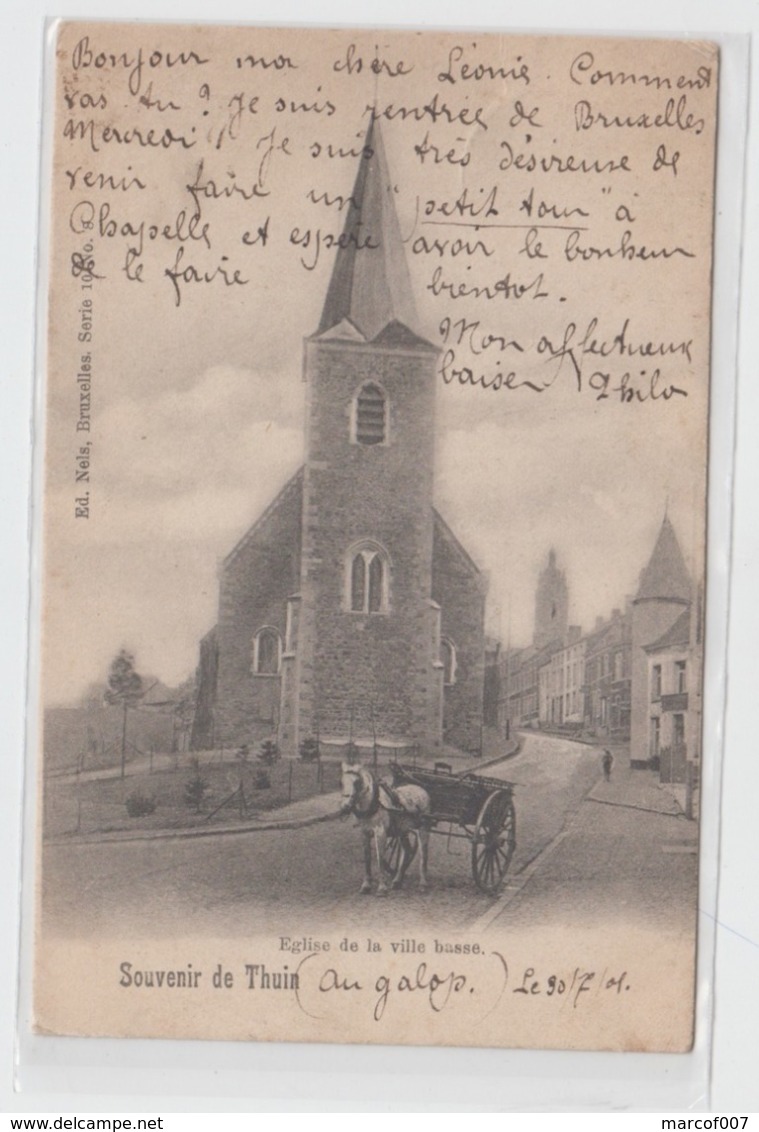 Bonjour ma chère Léonie. Comment
vas tu ? Je suis rentrée de Bruxelles
Mercredi, Je suis très désireuse de
venir faire un "petit tour" à
Chapelle et espère avoir le bonheur
de le faire bientot.
Mon affectueux
baiser Philo
Ed. Nels, Bruxelles. Serie No.
Eglise de la ville basse.
Souvenir de Thuin (au galop.) Le 30/7/01.
Delcampe.net
marcof007